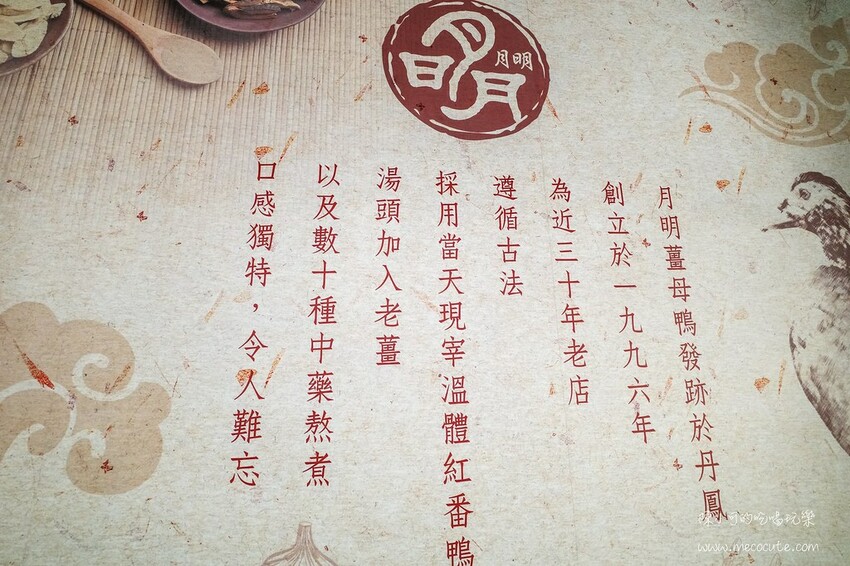 明月
月明
月明薑母鴨發跡於丹鳳
創立於一九九六年
為近三十年老店
遵循古法
採用當天現宰溫體紅番鴨
湯頭加入老薑
以及數十種中藥熬煮
口感獨特，令人難忘
的吃喝玩樂
www.mecocute.com